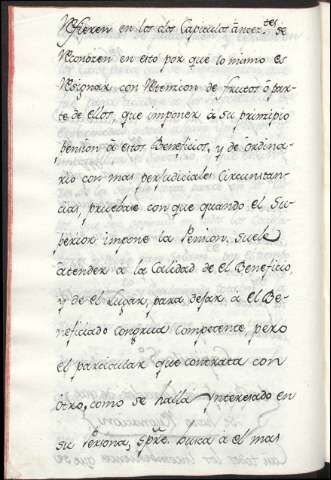 Refieren en los dos Capitulos anteztes se
Reconocen en esto por que lo mismo es
Resignar con Retencion de frutos ô par-
te de ellos, que imponer à su principio
pension à estos Beneficios, y de ôrdina-
rio con mas perjudiciales Circunstan-
cias, pruebase con que quando el Su-
perior impone la Pension, suele
àtender a la Calidad de el Beneficio,
y de el Lugar, para dejar a el Be-
neficiado Congrua Competente, pero
el particular que contrata con
otro, como se halla Ynteresado en
su Persona, Spre. busca a el mas